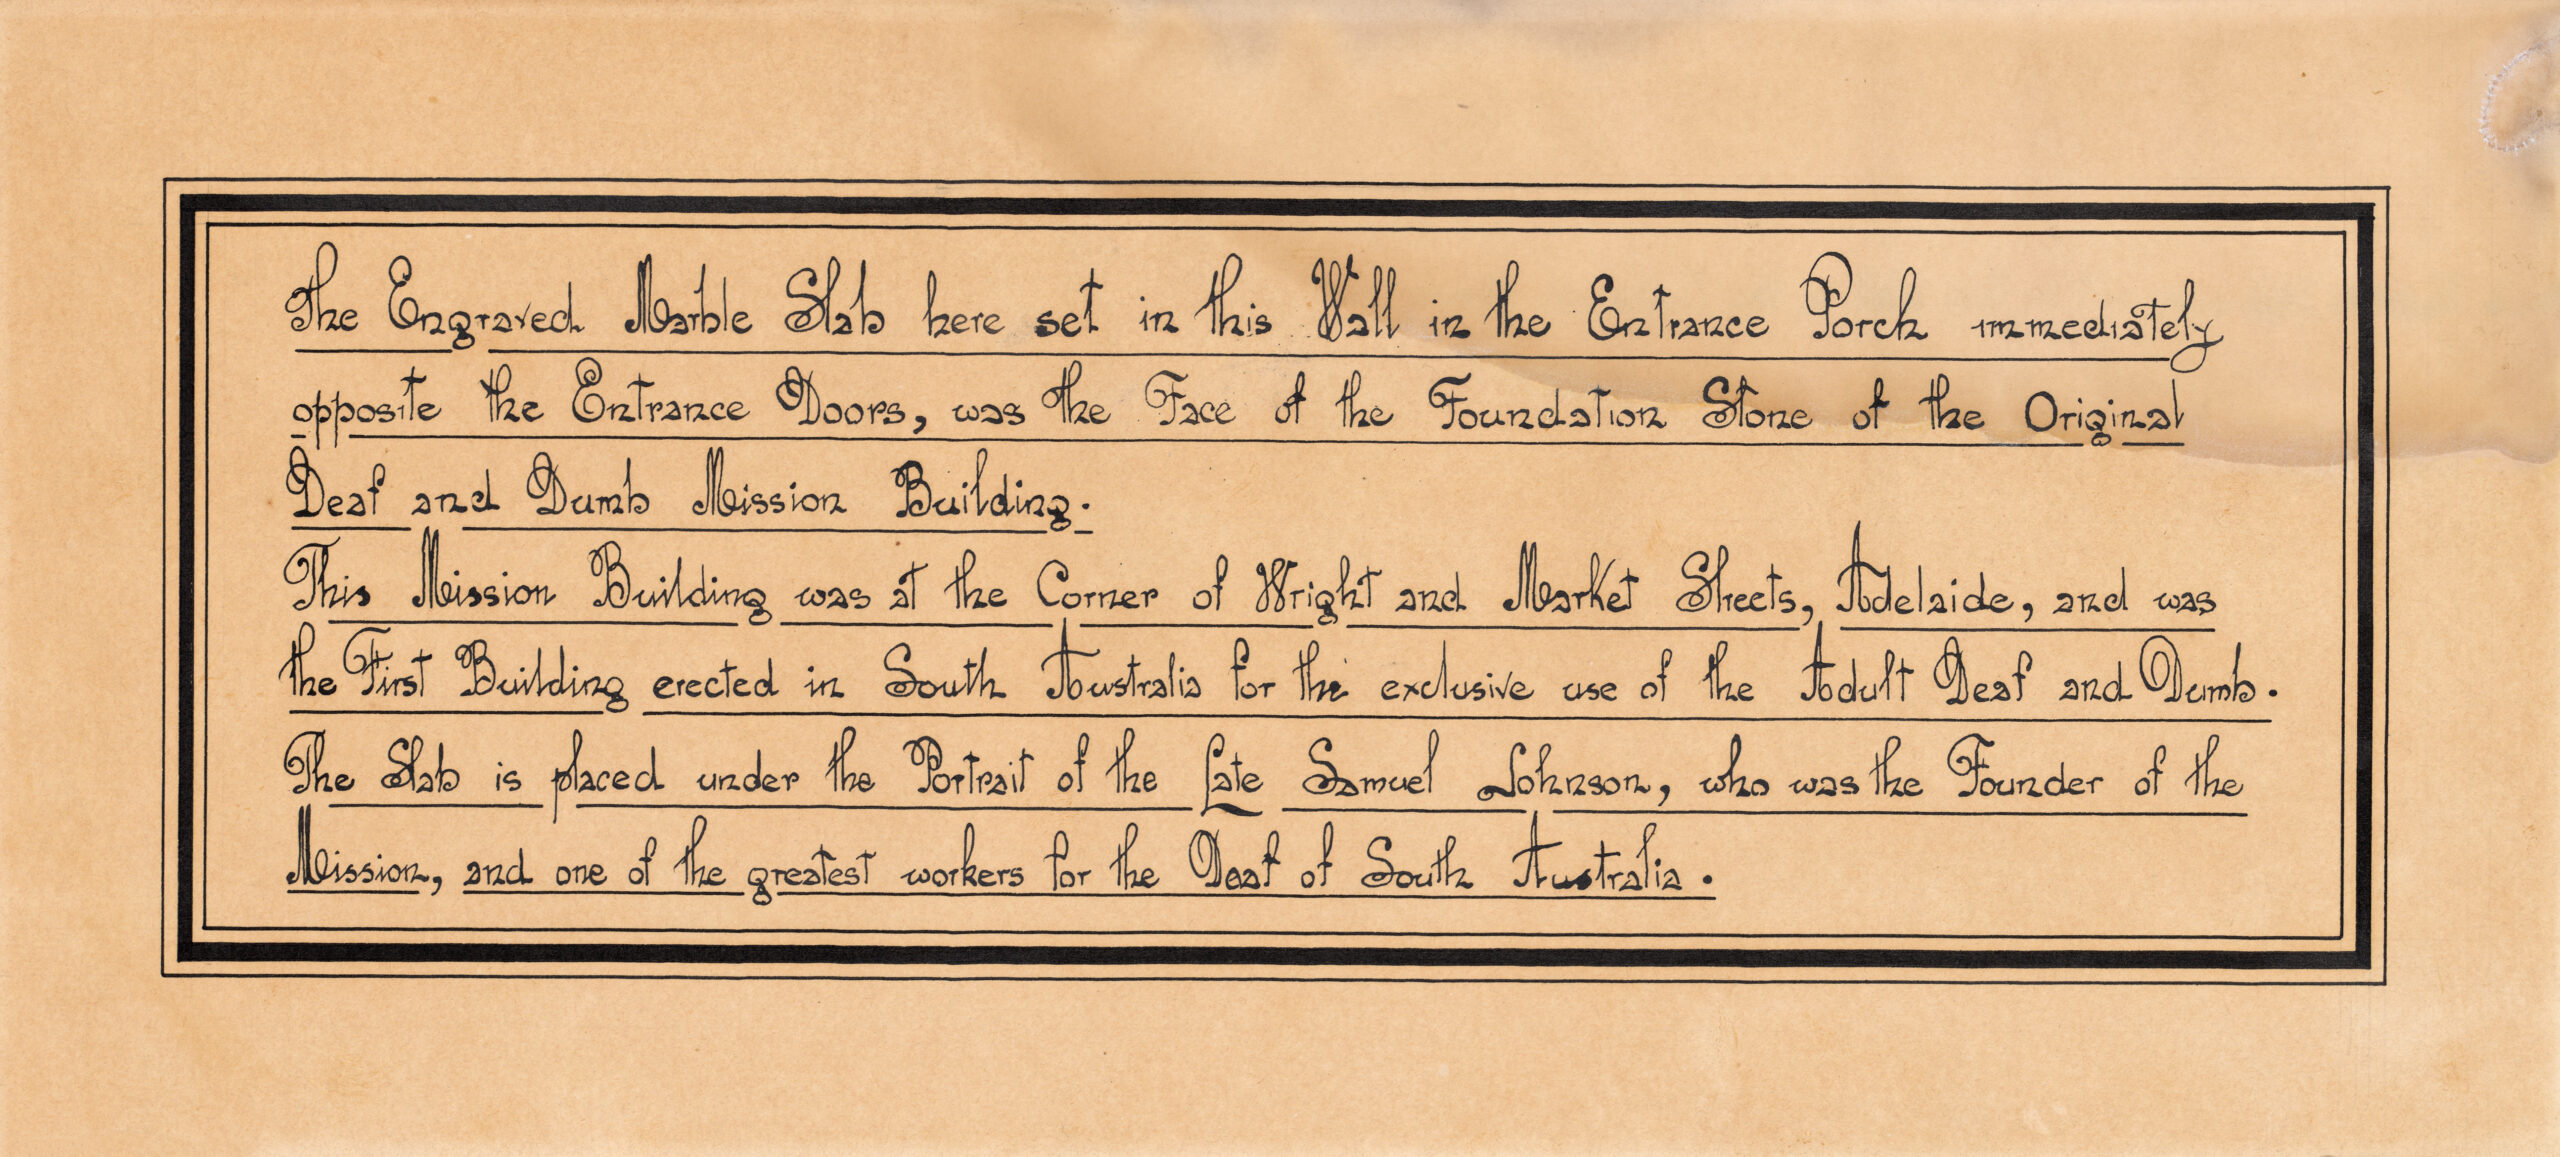 The Engraved Marble Slab here set in this Wall in the Entrance Porch immediately
opposite the Entrance Doors, was the Face of the Foundation Stone of the Original
Deaf and Dumb Mission Building.
This Mission Building was at the Corner of Wright and Market Streets, Adelaide, and was
the First Building erected in South Australia for the exclusive use of the Adult Deaf and Dumb.
The Slab is placed under the Portrait of the Late Samuel Johnson, who was the Founder of the
Mission, and one of the greatest workers for the Deaf of South Australia.